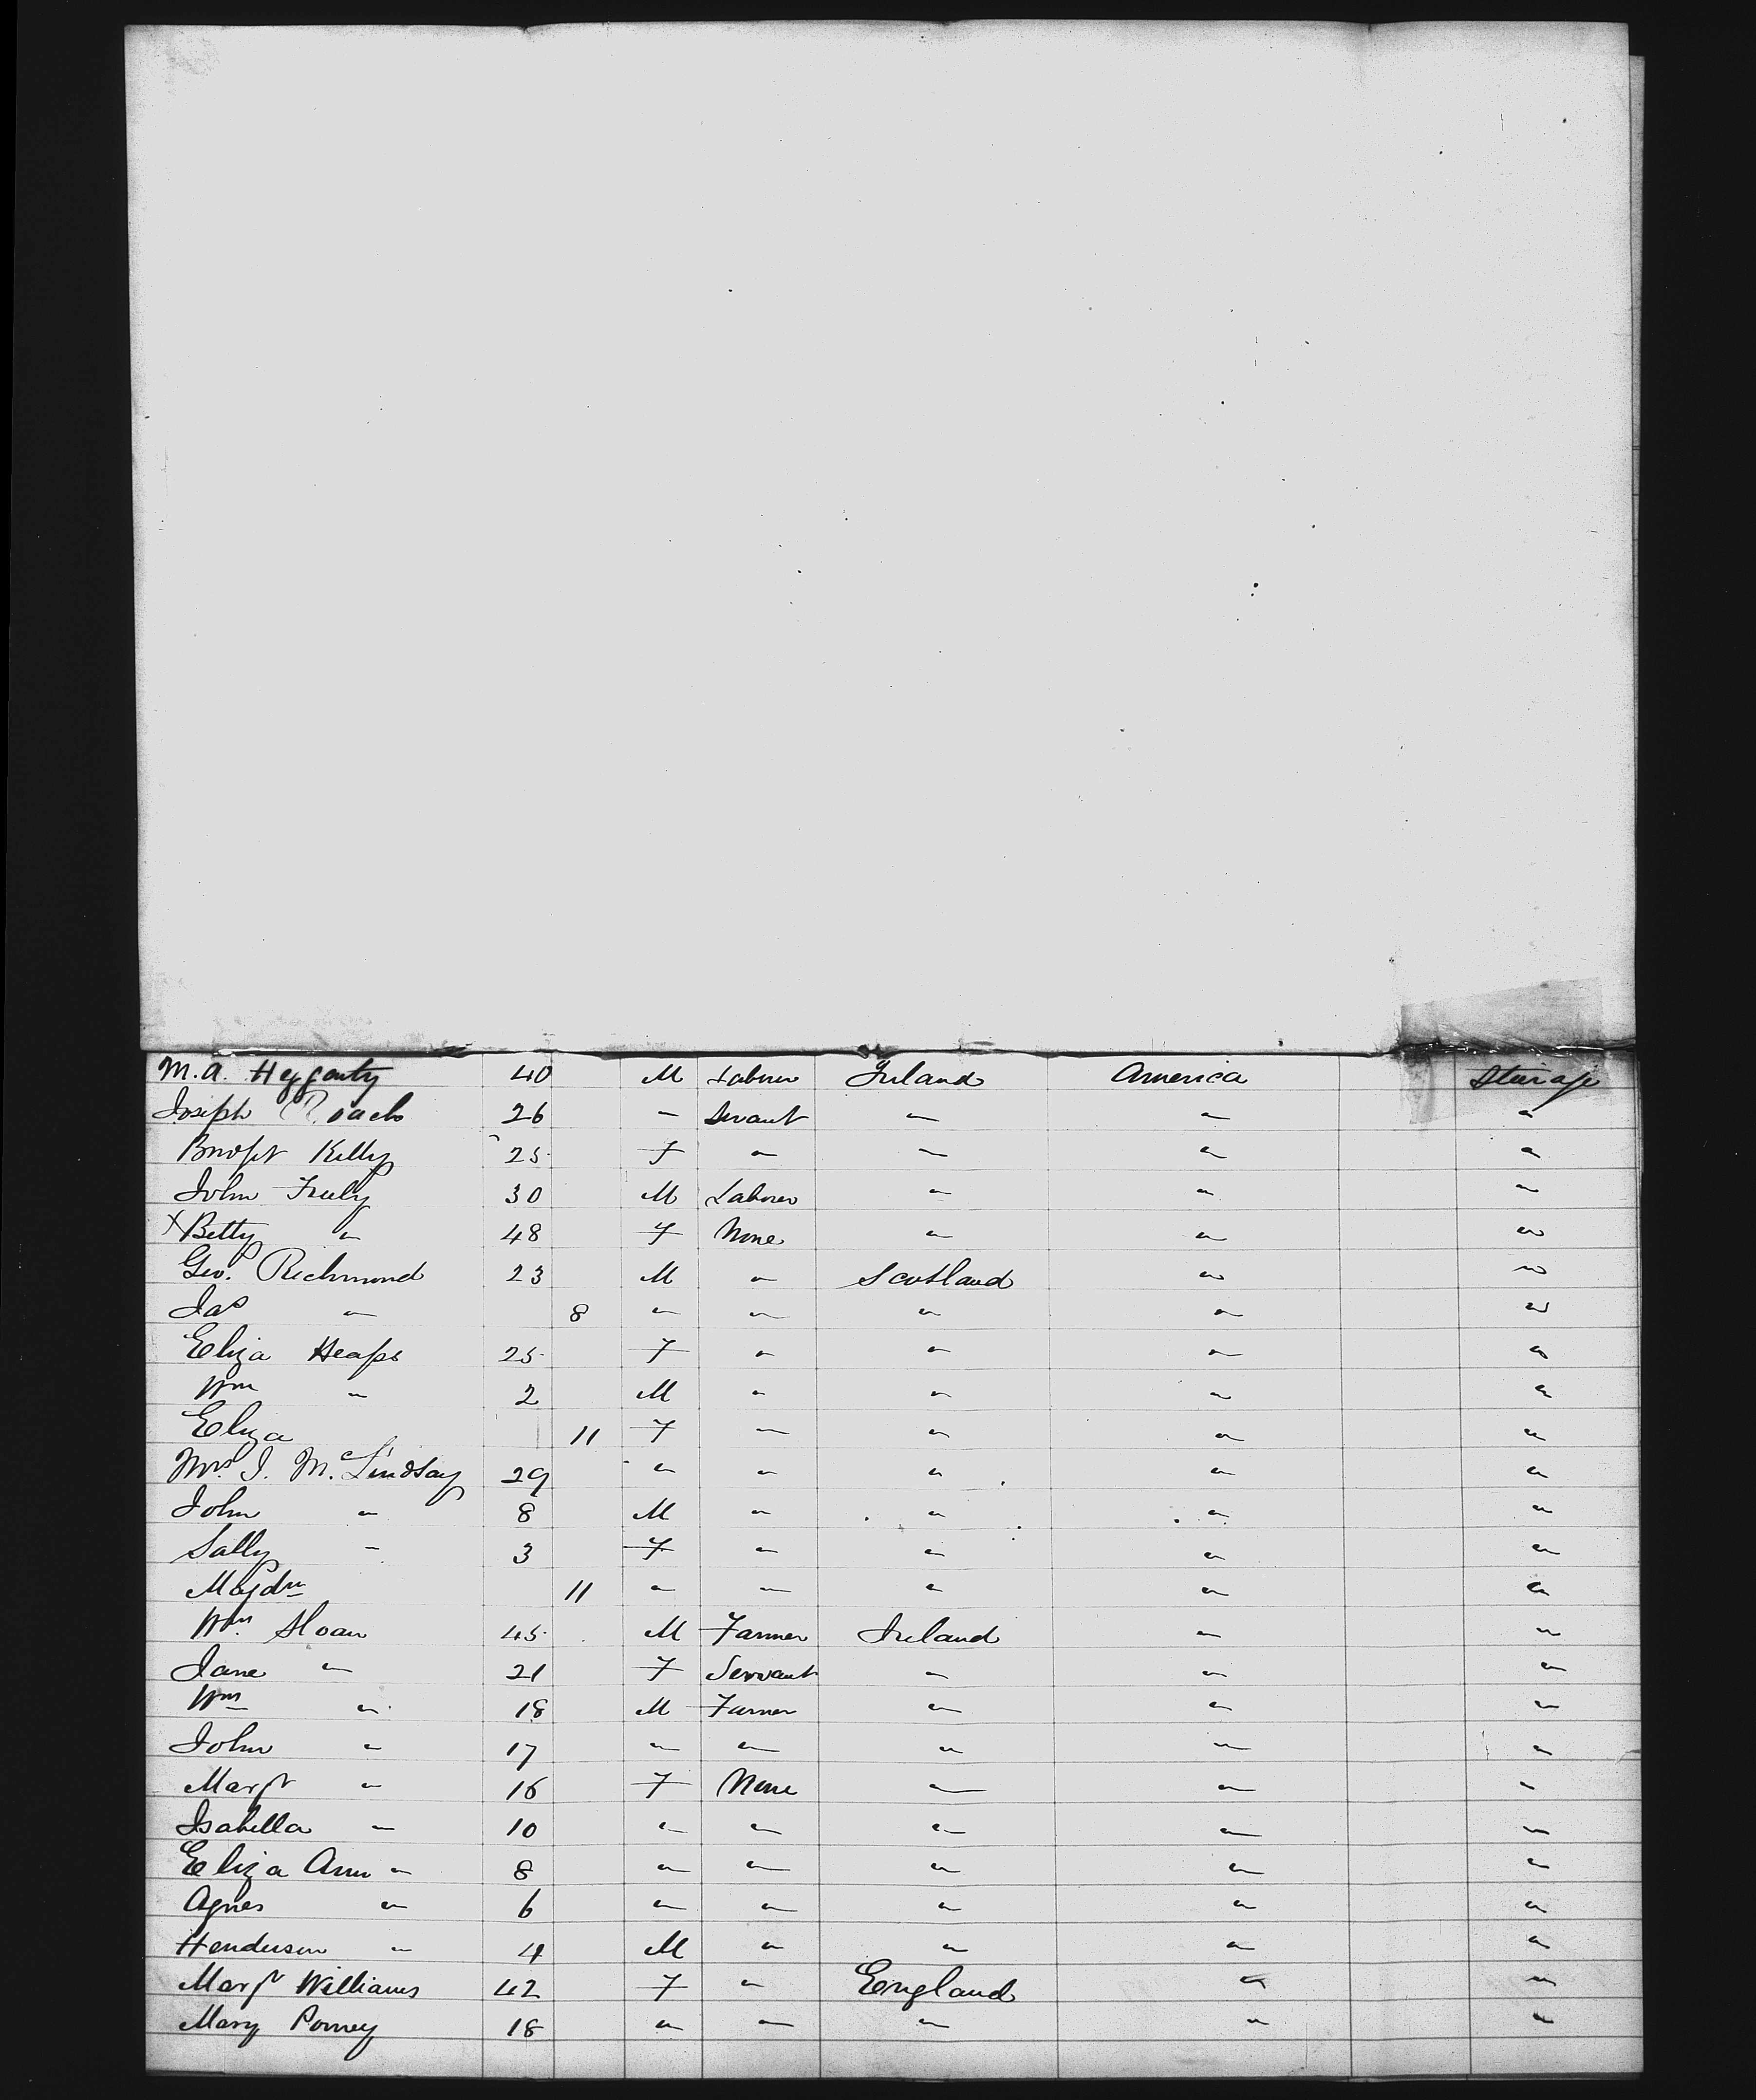 M. A. Heggarty 40 M Laborer Ireland America Steerage
Joseph Roach 26 " Servant " " "
Bridgt Kelly 25 F " " " "
John Truly 30 M Laborer " " "
x Betty " 48 F None " " "
Geo. Richmond 23 M " Scotland " "
Jas " 8 " " " " "
Eliza Heaps 25 F " " " "
Wm " 2 M " " " "
Eliza 11 F " " " "
Mrs. J. McLindsay 29 " " " " "
John " 8 M " " " "
Sally " 3 F " " " "
Magdn 11 " " " " "
Wm. Sloan 45 M Farmer Ireland " "
Jane " 21 F Servant " " "
Wm " 18 M Farmer " " "
John " 17 " " " " "
Margt " 16 F None " " "
Isabella " 10 " " " " "
Eliza Ann " 8 " " " " "
Agnes " 6 " " " " "
Henderson " 4 M " " " "
Margt Williams 42 F " England " "
Mary 18 " " " " "